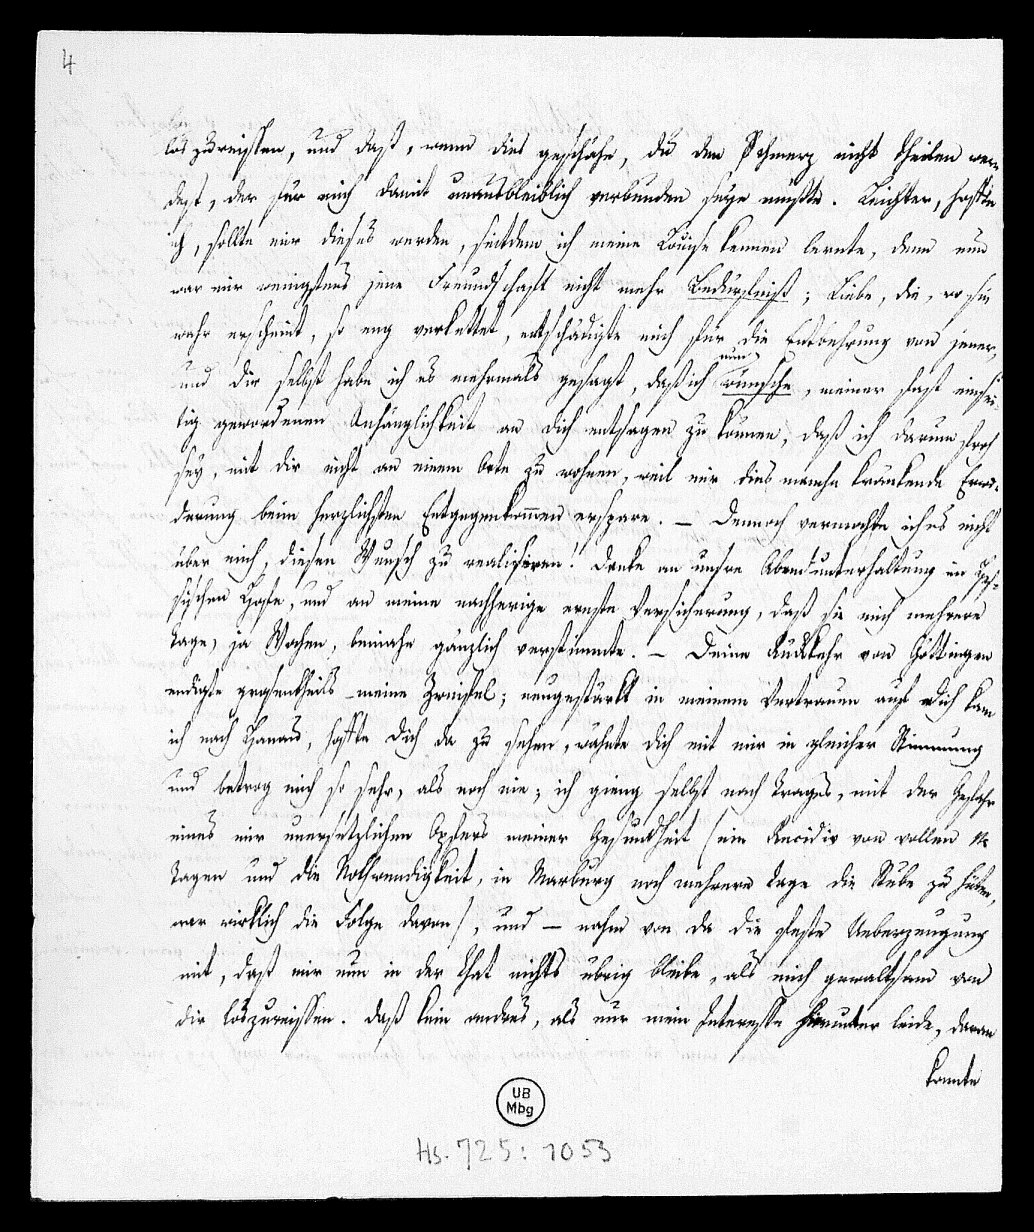 4
loszureissen, und daß, wenn dies geschähe, du den Schmerz nicht theilen wer-
dest, der für mich damit unausbleiblich verbunden seyn müßte. Leichter, hoffte
ich, sollte mir dieses werden, seitdem ich meine Louise kennen lernte, denn nun
war mir wenigstens jene Freundschaft nicht mehr Bedürfniß; Liebe, die, wo sie
wahr erscheint, so eng verkettet, entschädigte mich für die Entbehrung von jener,
und dir selbst habe ich es mehrmals gesagt, daß ich nun wünsche, meiner fast einsei-
tig gewordenen Anhänglichkeit an dich entsagen zu können, daß ich darum froh
sey, mit dir nicht an einem Orte zu wohnen, weil mir dies manche kränkende Erwi-
derung beim herzlichsten Entgegenkommen erspare. – Dennoch vermochte ich es nicht
über mich, diesen Wunsch zu realisiren! Denke an unsre Abendunterhaltung im
schen Hofe, und an meine nachherige ernste Versicherung, daß sie mich mehrere
Tage, ja Wochen, beinahe gänzlich verstimmte. – Deine Rückkehr von Göttingen
endigte grosentheils meine Zweifel; neugestärkt in meinem Vertrauen auf dich kam
ich nach Hanau, hoffte dich da zu sehen, wähnte dich mit mir in gleicher Stimmung
und betrog mich so sehr, als noch nie; ich gieng selbst nach Trages, mit der Gefahr
eines mir unersetzlichen Opfers meiner Gesundheit (ein Recidiv von vollen 14
Tagen und die Nothwendigkeit, in Marburg noch mehrere Tage die Stube zu hüten,
war wirklich die Folge davon), und – nahm von da die feste Ueberzeugung
mit, daß mir nun in der That nichts übrig bleibe, als mich gewaltsam von
dir loszureissen. Daß kein andres, als nur mein Interesse hierunter leide, daran
konnte
UB
Mbg
Hs. 725: 1053